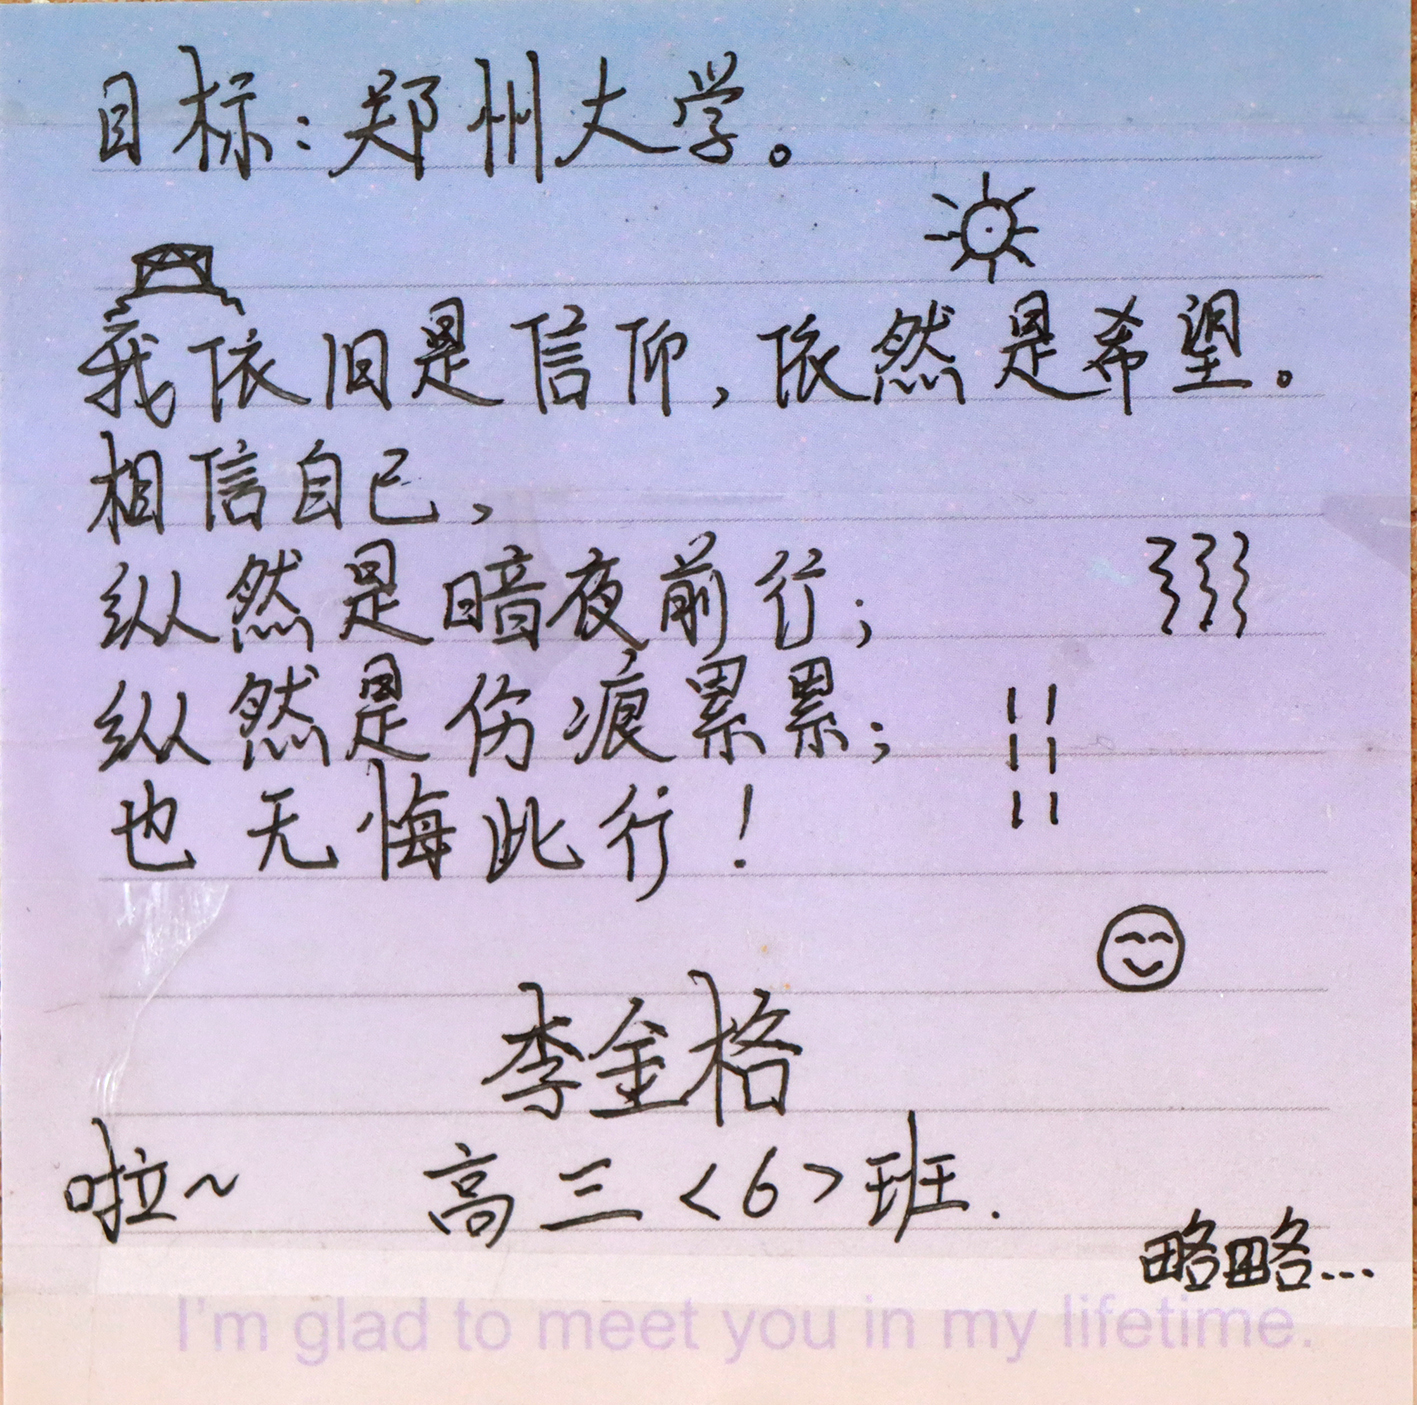 目标：郑州大学。
我依旧是信仰，依然是希望。
相信自己，
纵然是暗夜前行；
纵然是伤痕累累；
也无悔此行！
李金格
啦～ 高三<6>班.
略略...
I'm glad to meet you in my lifetime.